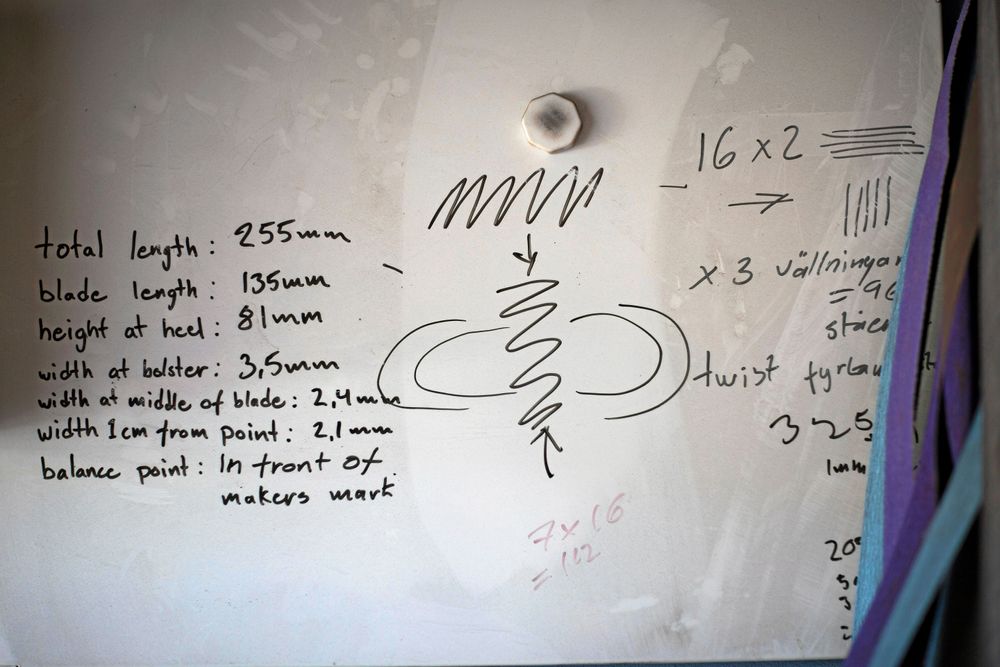 total length: 255mm
blade length: 135mm
height at heel: 81mm
width at bolster: 3,5mm
width at middle of blade: 2,4mm
width 1cm from point: 2,1mm
balance point: In front of
makers mark
7x16
= 112
16 x2
x 3 vällningar
= 96
twist
325
1mm
20
3